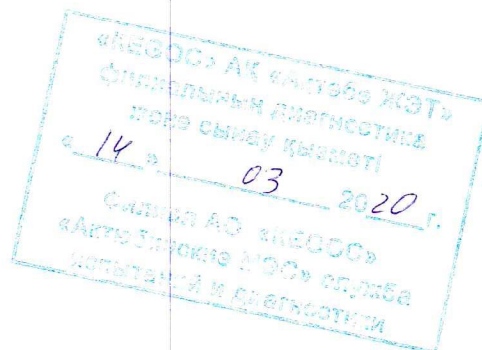 «KEGOC» АҚ «Ақтөбе ЖЭТ»
филиалының диагностика
және сынау қызметі
« 14 » 03 2020 г.
Филиал АО «KEGOC»
«Актюбинские МЭС» служба
испытаний и диагностики